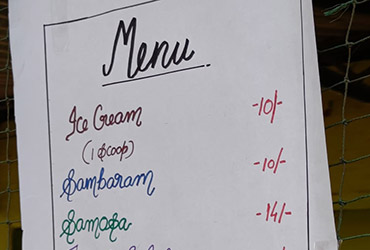 Menu
Ice Cream -10/-
(1 Scoop)
Sambaram -10/-
Samosa -14/-